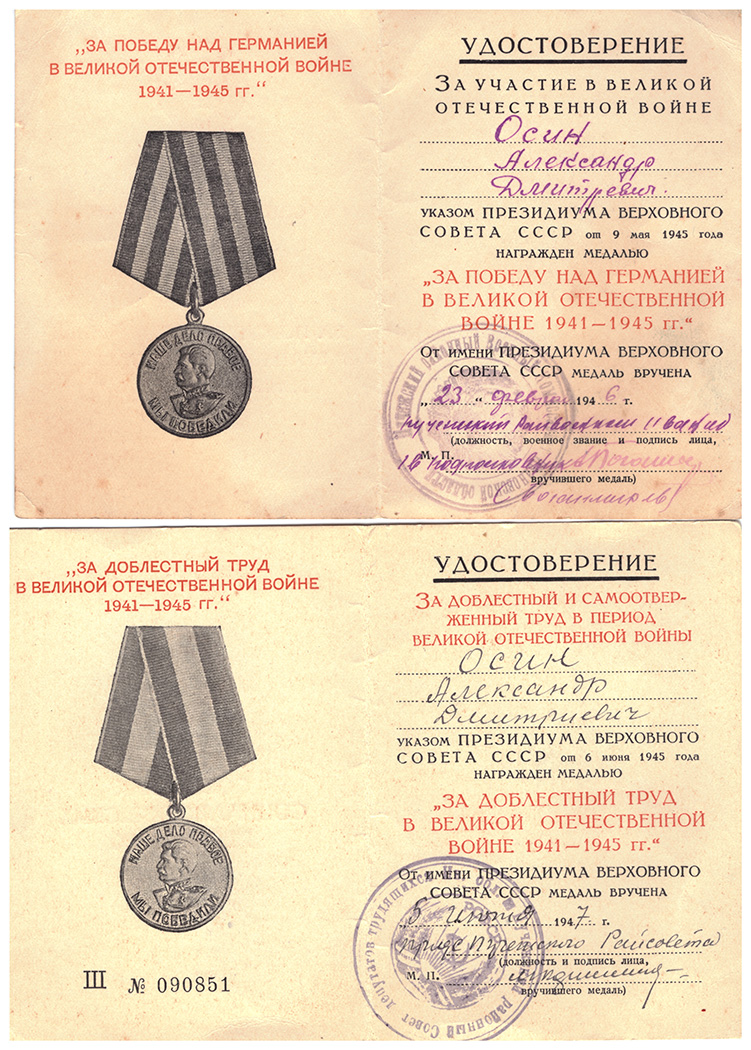 „ЗА ПОБЕДУ НАД ГЕРМАНИЕЙ
В ВЕЛИКОЙ ОТЕЧЕСТВЕННОЙ ВОЙНЕ
1941—1945 гг.“
НАШЕ ДЕЛО ПРАВОЕ
МЫ ПОБЕДИЛИ
УДОСТОВЕРЕНИЕ
ЗА УЧАСТИЕ В ВЕЛИКОЙ
ОТЕЧЕСТВЕННОЙ ВОЙНЕ
Осин
Александр
Дмитревич
УКАЗОМ ПРЕЗИДИУМА ВЕРХОВНОГО
СОВЕТА СССР от 9 мая 1945 года
НАГРАЖДЕН МЕДАЛЬЮ
„ЗА ПОБЕДУ НАД ГЕРМАНИЕЙ
В ВЕЛИКОЙ ОТЕЧЕСТВЕННОЙ
ВОЙНЕ 1941—1945 гг.“
ОТ ИМЕНИ ПРЕЗИДИУМА ВЕРХОВНОГО
СОВЕТА СССР МЕДАЛЬ ВРУЧЕНА
„23“ февраля 1946 г.
(должность, военное звание и подпись лица,
М. П.
вручившего медаль)
„ЗА ДОБЛЕСТНЫЙ ТРУД
В ВЕЛИКОЙ ОТЕЧЕСТВЕННОЙ ВОЙНЕ
1941—1945 гг.“
НАШЕ ДЕЛО ПРАВОЕ
МЫ ПОБЕДИЛИ
III № 090851
УДОСТОВЕРЕНИЕ
ЗА ДОБЛЕСТНЫЙ И САМООТВЕР-
ЖЕННЫЙ ТРУД В ПЕРИОД
ВЕЛИКОЙ ОТЕЧЕСТВЕННОЙ ВОЙНЫ
Осин
Александр
Дмитриевич
УКАЗОМ ПРЕЗИДИУМА ВЕРХОВНОГО
СОВЕТА СССР от 6 июня 1945 года
НАГРАЖДЕН МЕДАЛЬЮ
„ЗА ДОБЛЕСТНЫЙ ТРУД
В ВЕЛИКОЙ ОТЕЧЕСТВЕННОЙ
ВОЙНЕ 1941—1945 гг.“
ОТ ИМЕНИ ПРЕЗИДИУМА ВЕРХОВНОГО
СОВЕТА СССР МЕДАЛЬ ВРУЧЕНА
1947 г.
Пучежского Райсовета
(должность и подпись лица,
М. П.
вручившего медаль)
районный Совет депутатов трудящихся